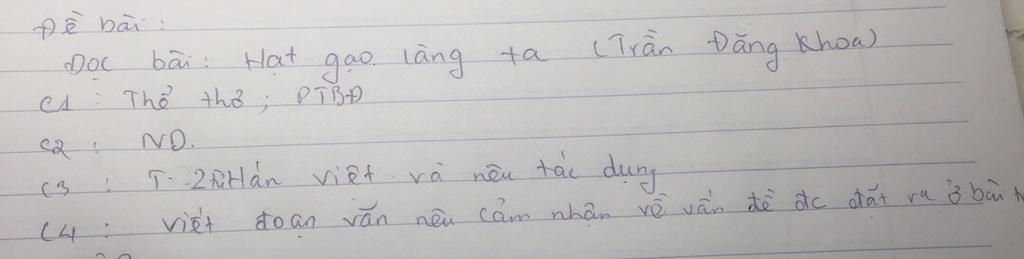 Đề bài:
Đọc bài: Hạt gạo làng ta (Trần Đăng Khoa)
C1: Thể thơ; PTBĐ
C2: ND.
C3: T. 2 Hán việt và nêu tác dụng
C4: viết đoạn văn nêu cảm nhận về vấn đề đc đặt ra ở bài